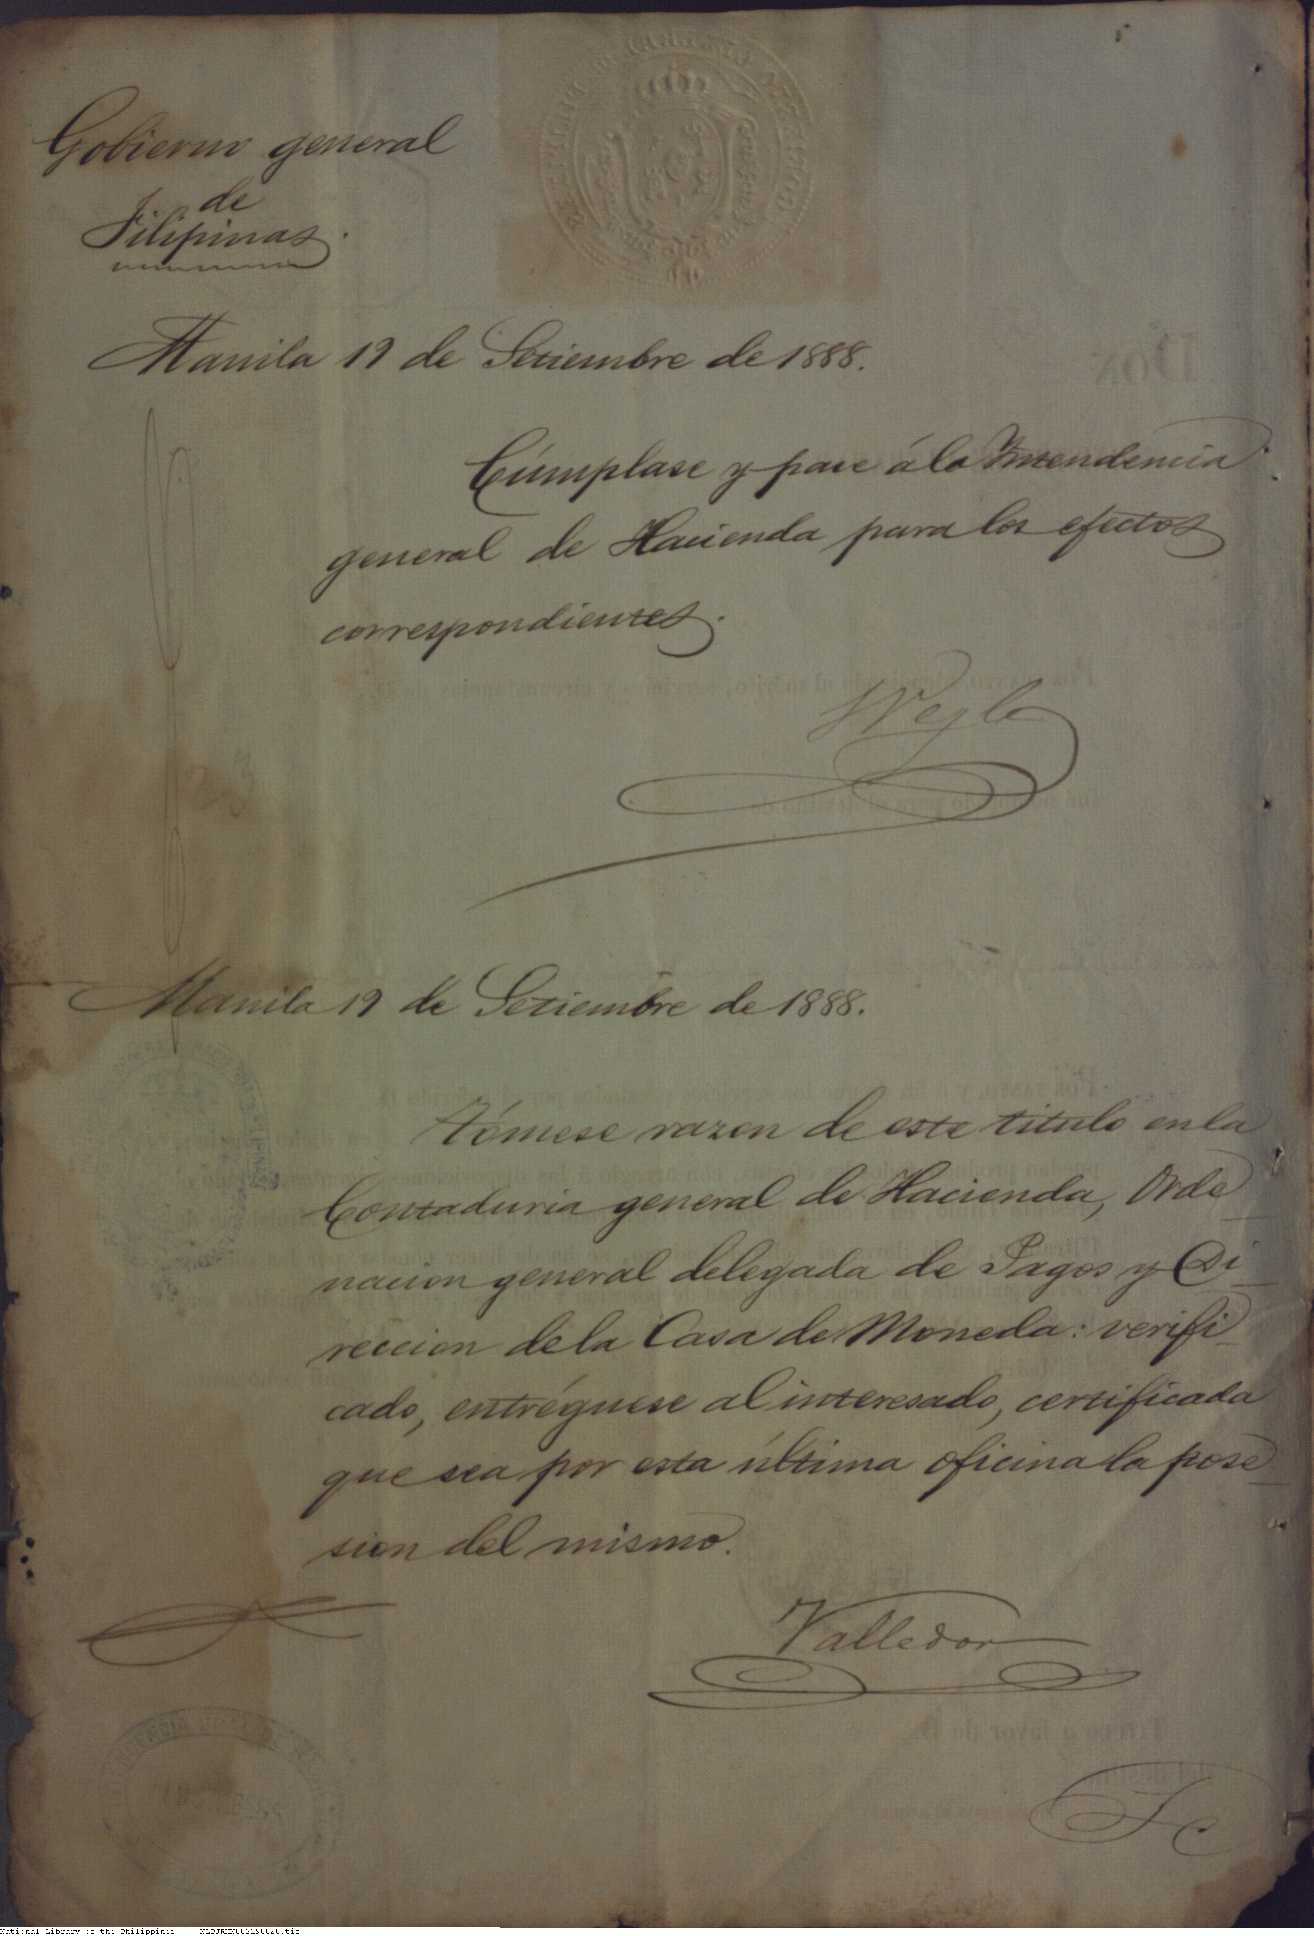 Gobierno general
de
Filipinas.
Manila 19 de Setiembre de 1888.
Cúmplase y pase á la Intendencia
general de Hacienda para los efectos
correspondientes.
Weyler
Manila 19 de Setiembre de 1888.
Tómese razon de este titulo en la
Contaduria general de Hacienda, Orde
nacion general delegada de Pagos y Di
reccion de la Casa de Moneda: verifi
cado, entréguese al interesado, certificada
que sea por esta última oficina la pose
sion del mismo.
Valledor
National Library of the Philippines